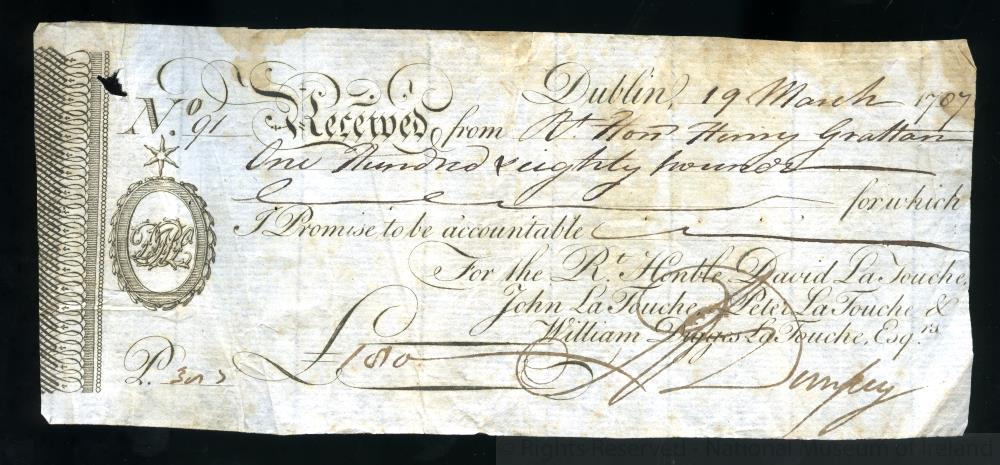 Dublin, 19 March 1787
N.o 91 Received from Rt Honn Henry Grattan
One Hundred & eighty pounds
for which
I Promise to be accountable
For the Rt. Honble. David La Touche,
John La Touche, Peter La Touche &
William Digges La Touche, Esqrs.
£180
P.
© Rights Reserved - National Museum of Ireland